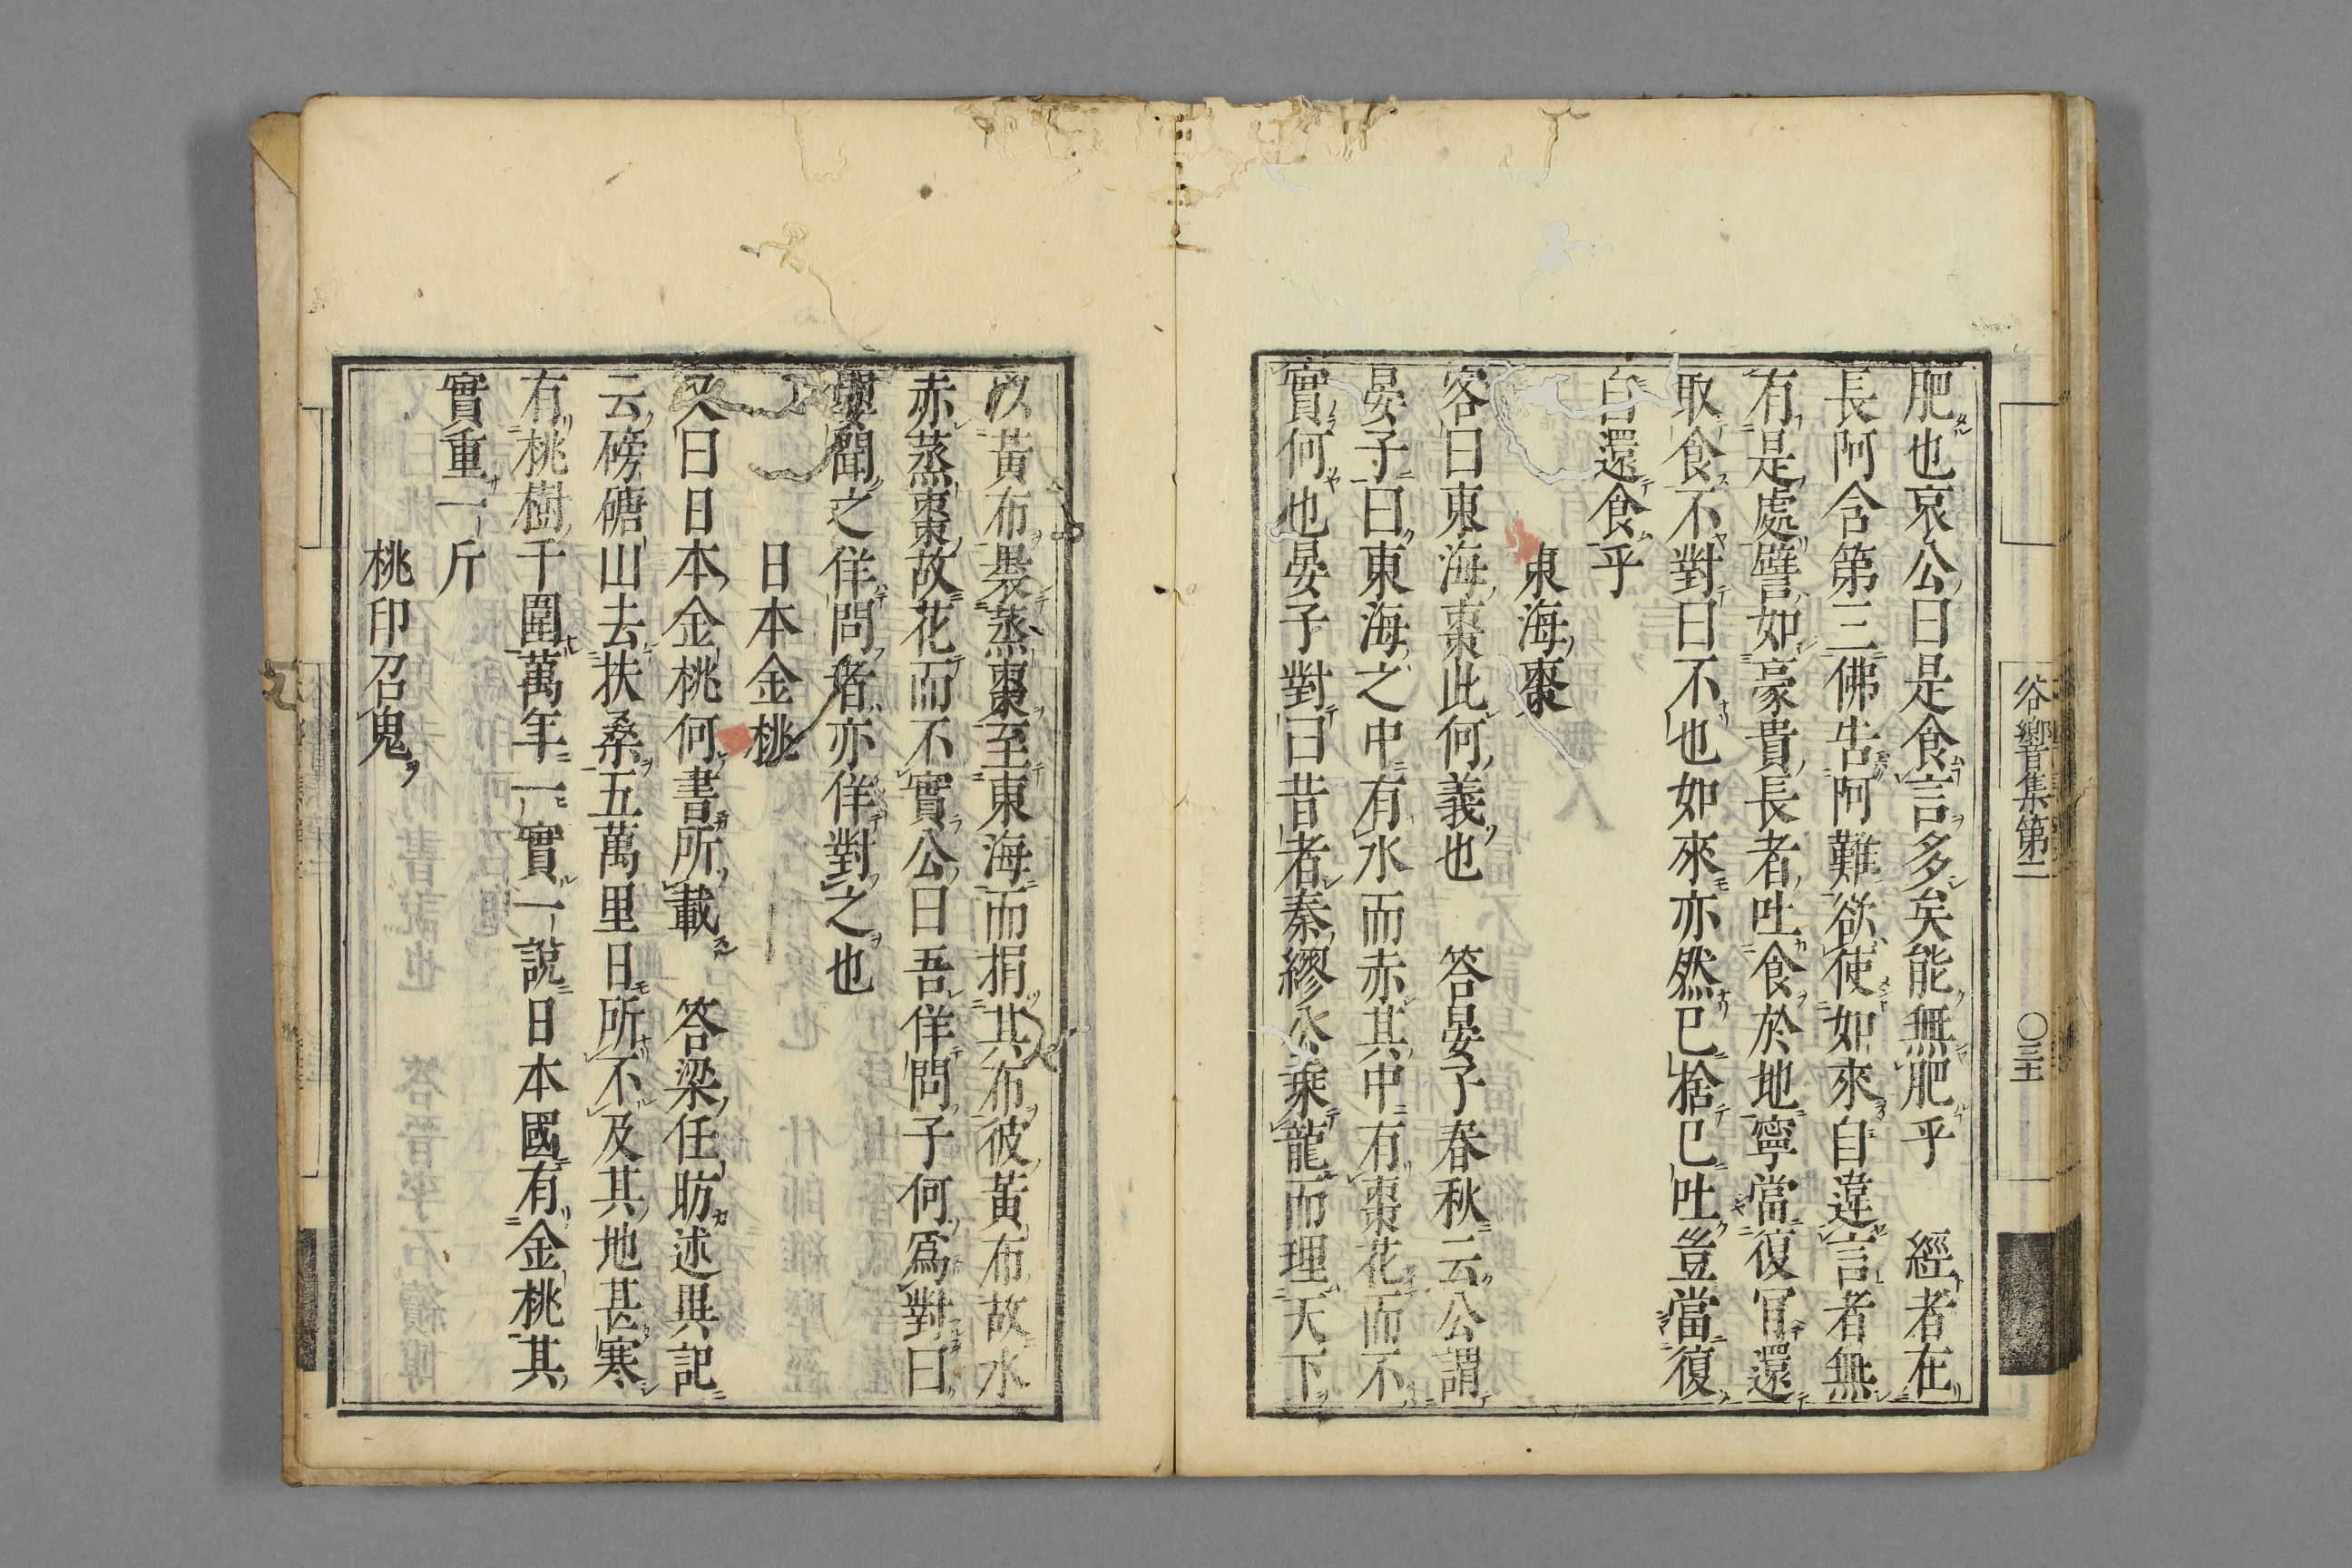 肥也哀公曰是食言多矣能無肥乎　經者在
長阿含第三佛告阿難欲使如來自違言者無
有是處譬如豪貴長者吐食於地寧當復冃還
取食不對曰不也如來亦然已捨已吐豈當復
自還食乎
東海棗
客曰東海棗此何義也　答晏子春秋云公謂
晏子曰東海之中有水而赤其中有棗花而不
實何也晏子對曰昔者秦繆公乘龍而理天下
以黃布裹蒸棗至東海而捐其布彼黃布故水
赤蒸棗故花而不實公曰吾佯問子何爲對曰
嬰聞之佯問者亦佯對之也
日本金桃
又曰日本金桃何書所載　答梁任昉述異記
云磅磄山去扶桑五萬里日所不及其地甚寒
有桃樹千圍萬年一實一說日本國有金桃其
實重一斤
桃印召鬼
谷響集第二
○三十二